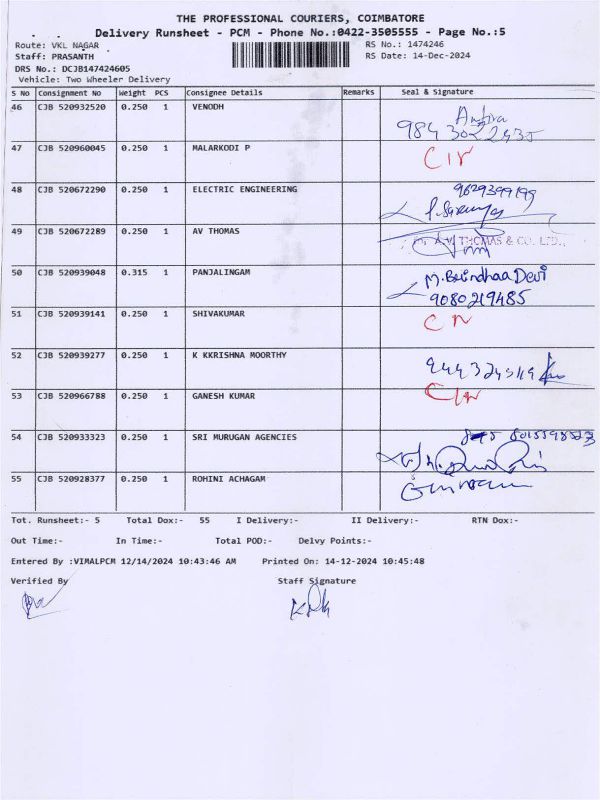 THE PROFESSIONAL COURIERS, COIMBATORE
Delivery Runsheet - PCM - Phone No.:0422-3505555 - Page No.:5
Route: VKL NAGAR RS No.: 1474246
Staff: PRASANTH RS Date: 14-Dec-2024
DRS No.: DCJB147424605
Vehicle: Two Wheeler Delivery
S No Consignment No Weight PCS Consignee Details Remarks Seal & Signature
46 CJB 520932520 0.250 1 VENODH
47 CJB 520960045 0.250 1 MALARKODI P
48 CJB 520672290 0.250 1 ELECTRIC ENGINEERING
9629399199
49 CJB 520672289 0.250 1 AV THOMAS
A.V. THOMAS & CO. LTD.,
50 CJB 520939048 0.315 1 PANJALINGAM M. Brindhaa Devi
9080219485
51 CJB 520939141 0.250 1 SHIVAKUMAR
52 CJB 520939277 0.250 1 K KKRISHNA MOORTHY
53 CJB 520966788 0.250 1 GANESH KUMAR
54 CJB 520933323 0.250 1 SRI MURUGAN AGENCIES
55 CJB 520928377 0.250 1 ROHINI ACHAGAM
Tot. Runsheet:- 5 Total Dox:- 55 I Delivery:- II Delivery:- RTN Dox:-
Out Time:- In Time:- Total POD:- Delvy Points:-
Entered By :VIMALPCM 12/14/2024 10:43:46 AM Printed On: 14-12-2024 10:45:48
Verified By Staff Signature